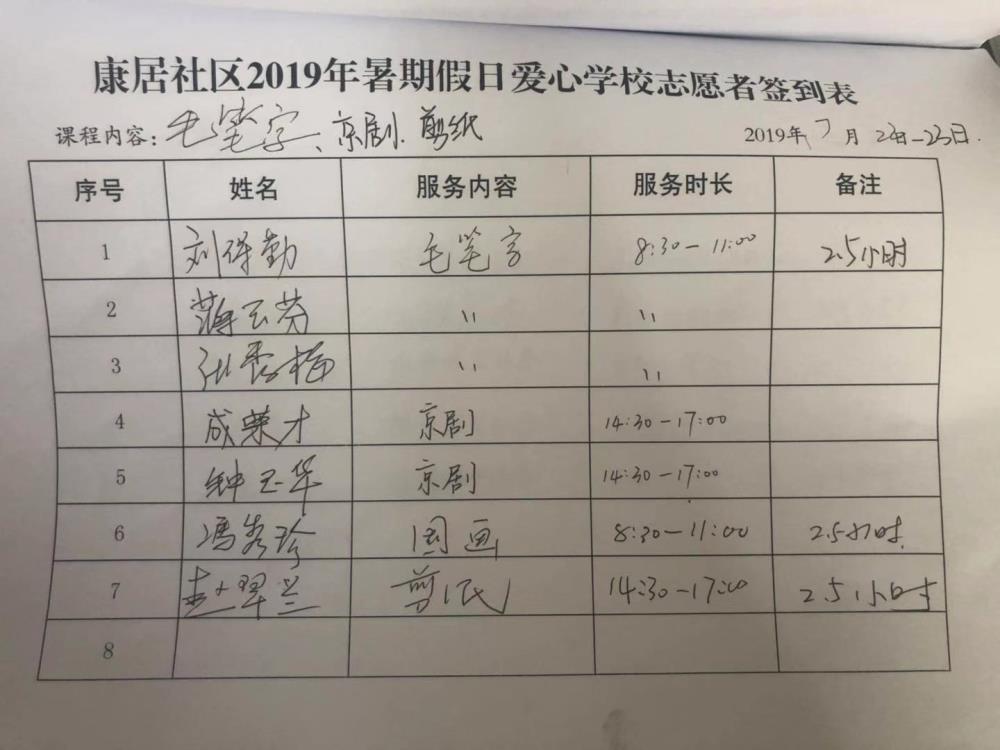 康居社区2019年暑期假日爱心学校志愿者签到表
课程内容：毛笔字、京剧.剪纸 2019年7月22日-23日.
序号 姓名 服务内容 服务时长 备注
1 刘保勤 毛笔字 8:30-11:00 2.5小时
2 薄云芳 〃 〃
3 张秀梅 〃 〃
4 成荣才 京剧 14:30-17:00
5 钟玉华 京剧 14:30-17:00
6 冯秀珍 国画 8:30-11:00 2.5小时
7 翠兰 剪纸 14:30-17:00 2.5小时
8